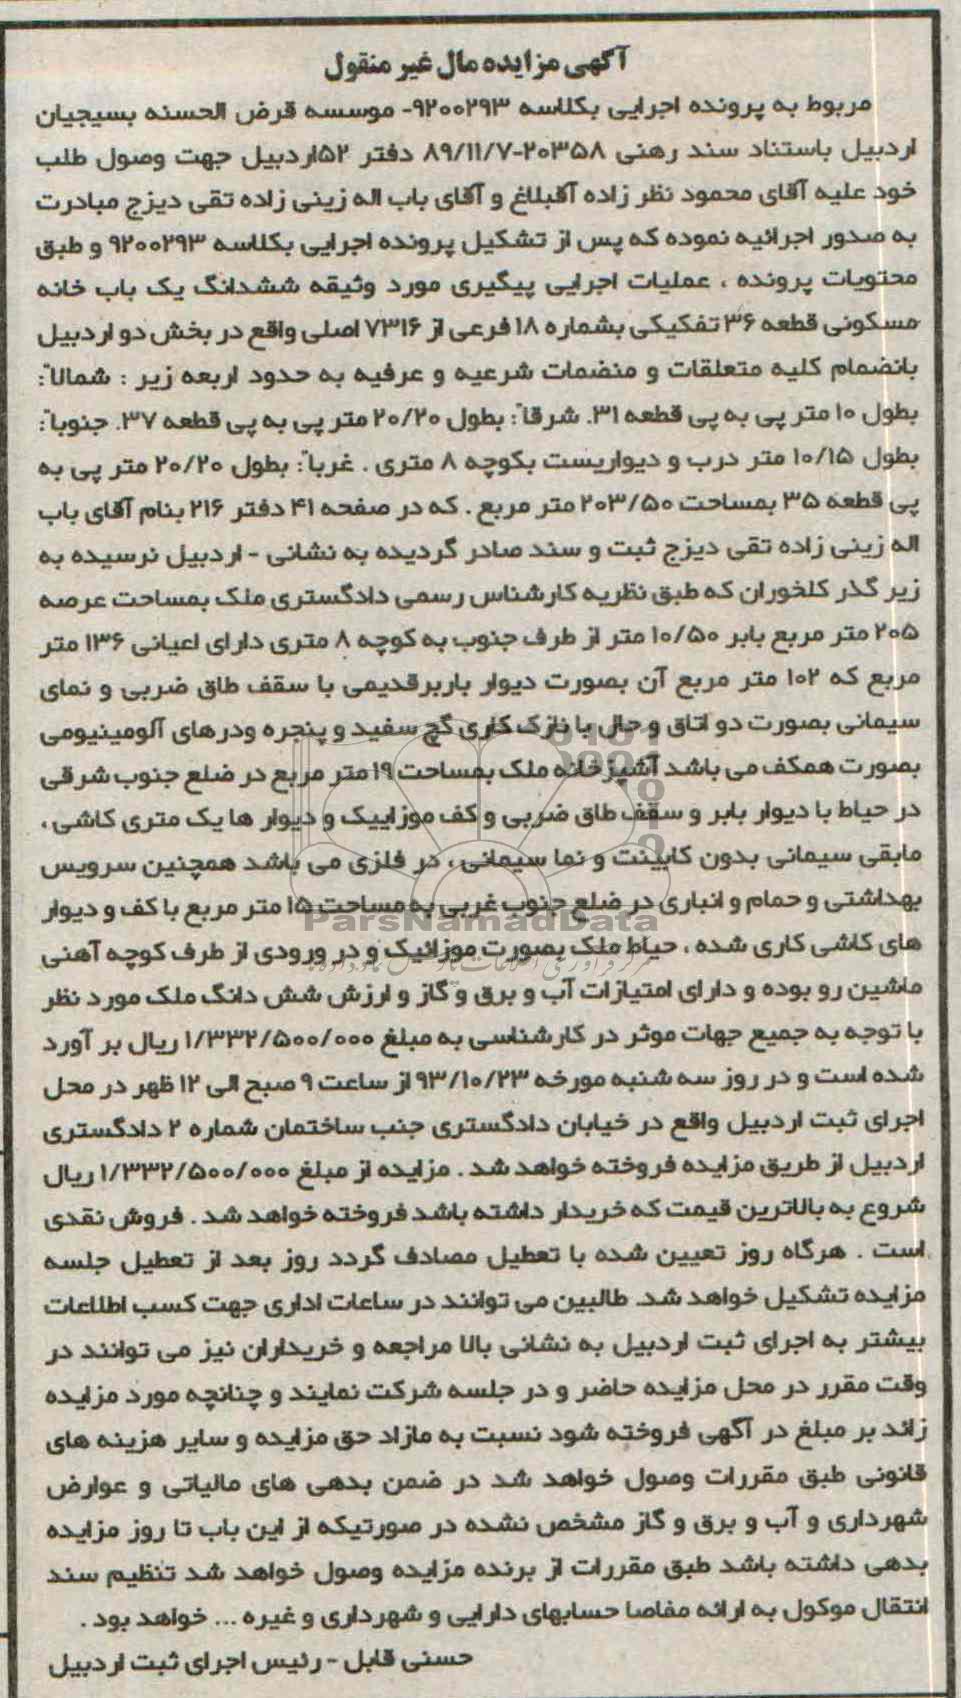 آگهی مزایده مال غیر منقول
مربوط به پرونده اجرایی بکلاسه ۹۲۰۰۲۹۳- موسسه قرض الحسنه بسیجیان
اردبیل باستناد سند رهنی ۲۰۳۵۸-۸۹/۱۱/۷ دفتر ۵۲اردبیل جهت وصول طلب
خود علیه آقای محمود نظر زاده آقبلاغ و آقای باب اله زینی زاده تقی دیزج مبادرت
به صدور اجرائیه نموده که پس از تشکیل پرونده اجرایی بکلاسه ۹۲۰۰۲۹۳ و طبق
محتویات پرونده ، عملیات اجرایی پیگیری مورد وثیقه ششدانگ یک باب خانه
مسکونی قطعه ۳۶ تفکیکی بشماره ۱۸ فرعی از ۷۳۱۶ اصلی واقع در بخش دو اردبیل
بانضمام کلیه متعلقات و منضمات شرعیه و عرفیه به حدود اربعه زیر : شمالاً:
بطول ۱۰ متر پی به پی قطعه ۳۱. شرقاً: بطول ۲۰/۲۰ متر پی به پی قطعه ۳۷. جنوباً:
بطول ۱۰/۱۵ متر درب و دیواریست بکوچه ۸ متری . غرباً: بطول ۲۰/۲۰ متر پی به
پی قطعه ۳۵ بمساحت ۲۰۳/۵۰ متر مربع . که در صفحه ۴۱ دفتر ۲۱۶ بنام آقای باب
اله زینی زاده تقی دیزج ثبت و سند صادر گردیده به نشانی - اردبیل نرسیده به
زیر گذر کلخوران که طبق نظریه کارشناس رسمی دادگستری ملک بمساحت عرصه
۲۰۵ متر مربع بابر ۱۰/۵۰ متر از طرف جنوب به کوچه ۸ متری دارای اعیانی ۱۳۶ متر
مربع که ۱۰۲ متر مربع آن بصورت دیوار باربرقدیمی با سقف طاق ضربی و نمای
سیمانی بصورت دو اتاق و حال با نازک کاری گچ سفید و پنجره ودرهای آلومینیومی
بصورت همکف می باشد آشپزخانه ملک بمساحت ۱۹ متر مربع در ضلع جنوب شرقی
در حیاط با دیوار بابر و سقف طاق ضربی و کف موزاییک و دیوار ها یک متری کاشی ،
مابقی سیمانی بدون کابینت و نما سیمانی ، در فلزی می باشد همچنین سرویس
بهداشتی و حمام و انباری در ضلع جنوب غربی به مساحت ۱۵ متر مربع با کف و دیوار
ParsNamadData
های کاشی کاری شده ، حیاط ملک بصورت موزائیک و در ورودی از طرف کوچه آهنی
ماشین رو بوده و دارای امتیازات آب و برق و گاز و ارزش شش دانگ ملک مورد نظر
با توجه به جمیع جهات موثر در کارشناسی به مبلغ ۱/۳۳۲/۵۰۰/۰۰۰ ریال بر آورد
شده است و در روز سه شنبه مورخه ۹۳/۱۰/۲۳ از ساعت ۹ صبح الی ۱۲ ظهر در محل
اجرای ثبت اردبیل واقع در خیابان دادگستری جنب ساختمان شماره ۲ دادگستری
اردبیل از طریق مزایده فروخته خواهد شد . مزایده از مبلغ ۱/۳۳۲/۵۰۰/۰۰۰ ریال
شروع به بالاترین قیمت که خریدار داشته باشد فروخته خواهد شد . فروش نقدی
است . هرگاه روز تعیین شده با تعطیل مصادف گردد روز بعد از تعطیل جلسه
مزایده تشکیل خواهد شد. طالبین می توانند در ساعات اداری جهت کسب اطلاعات
بیشتر به اجرای ثبت اردبیل به نشانی بالا مراجعه و خریداران نیز می توانند در
وقت مقرر در محل مزایده حاضر و در جلسه شرکت نمایند و چنانچه مورد مزایده
زائد بر مبلغ در آگهی فروخته شود نسبت به مازاد حق مزایده و سایر هزینه های
قانونی طبق مقررات وصول خواهد شد در ضمن بدهی های مالیاتی و عوارض
شهرداری و آب و برق و گاز مشخص نشده در صورتیکه از این باب تا روز مزایده
بدهی داشته باشد طبق مقررات از برنده مزایده وصول خواهد شد تنظیم سند
انتقال موکول به ارائه مفاصا حسابهای دارایی و شهرداری و غیره ... خواهد بود .
حسنی قابل - رئیس اجرای ثبت اردبیل